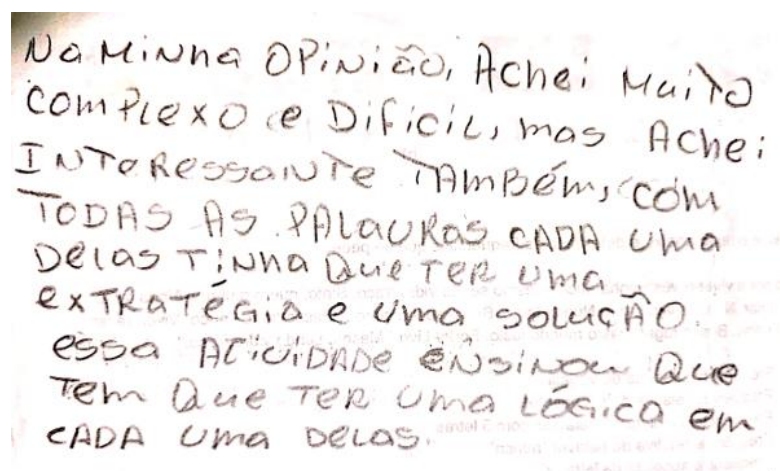 Na Minha OPiNião, Achei Muito
complexo e Dificil, mas Achei
INTeRessaNTe TAmBém, com
TODAS AS PALavRas CADA uma
Delas TiNha Que TeR uma
exTRaTéGia e uma soluçÃO.
essa ATiviDADe eNsiNou Que
Tem Que TeR uma LóGica em
CADA uma Delas.